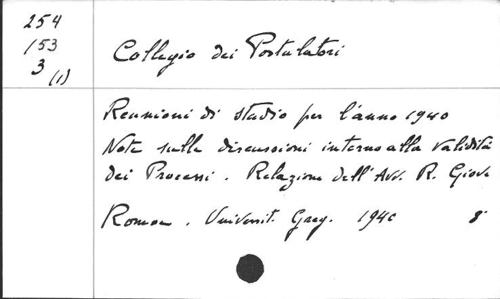 254
153
3 (1)
Collegio dei Postulatori
Reunioni di studio per l'anno 1940
Note sulle discussioni intorno alla validità
dei Processi. Relazione dell'Avv. R. Giove
Roma. Universit. Greg. 1940 8°